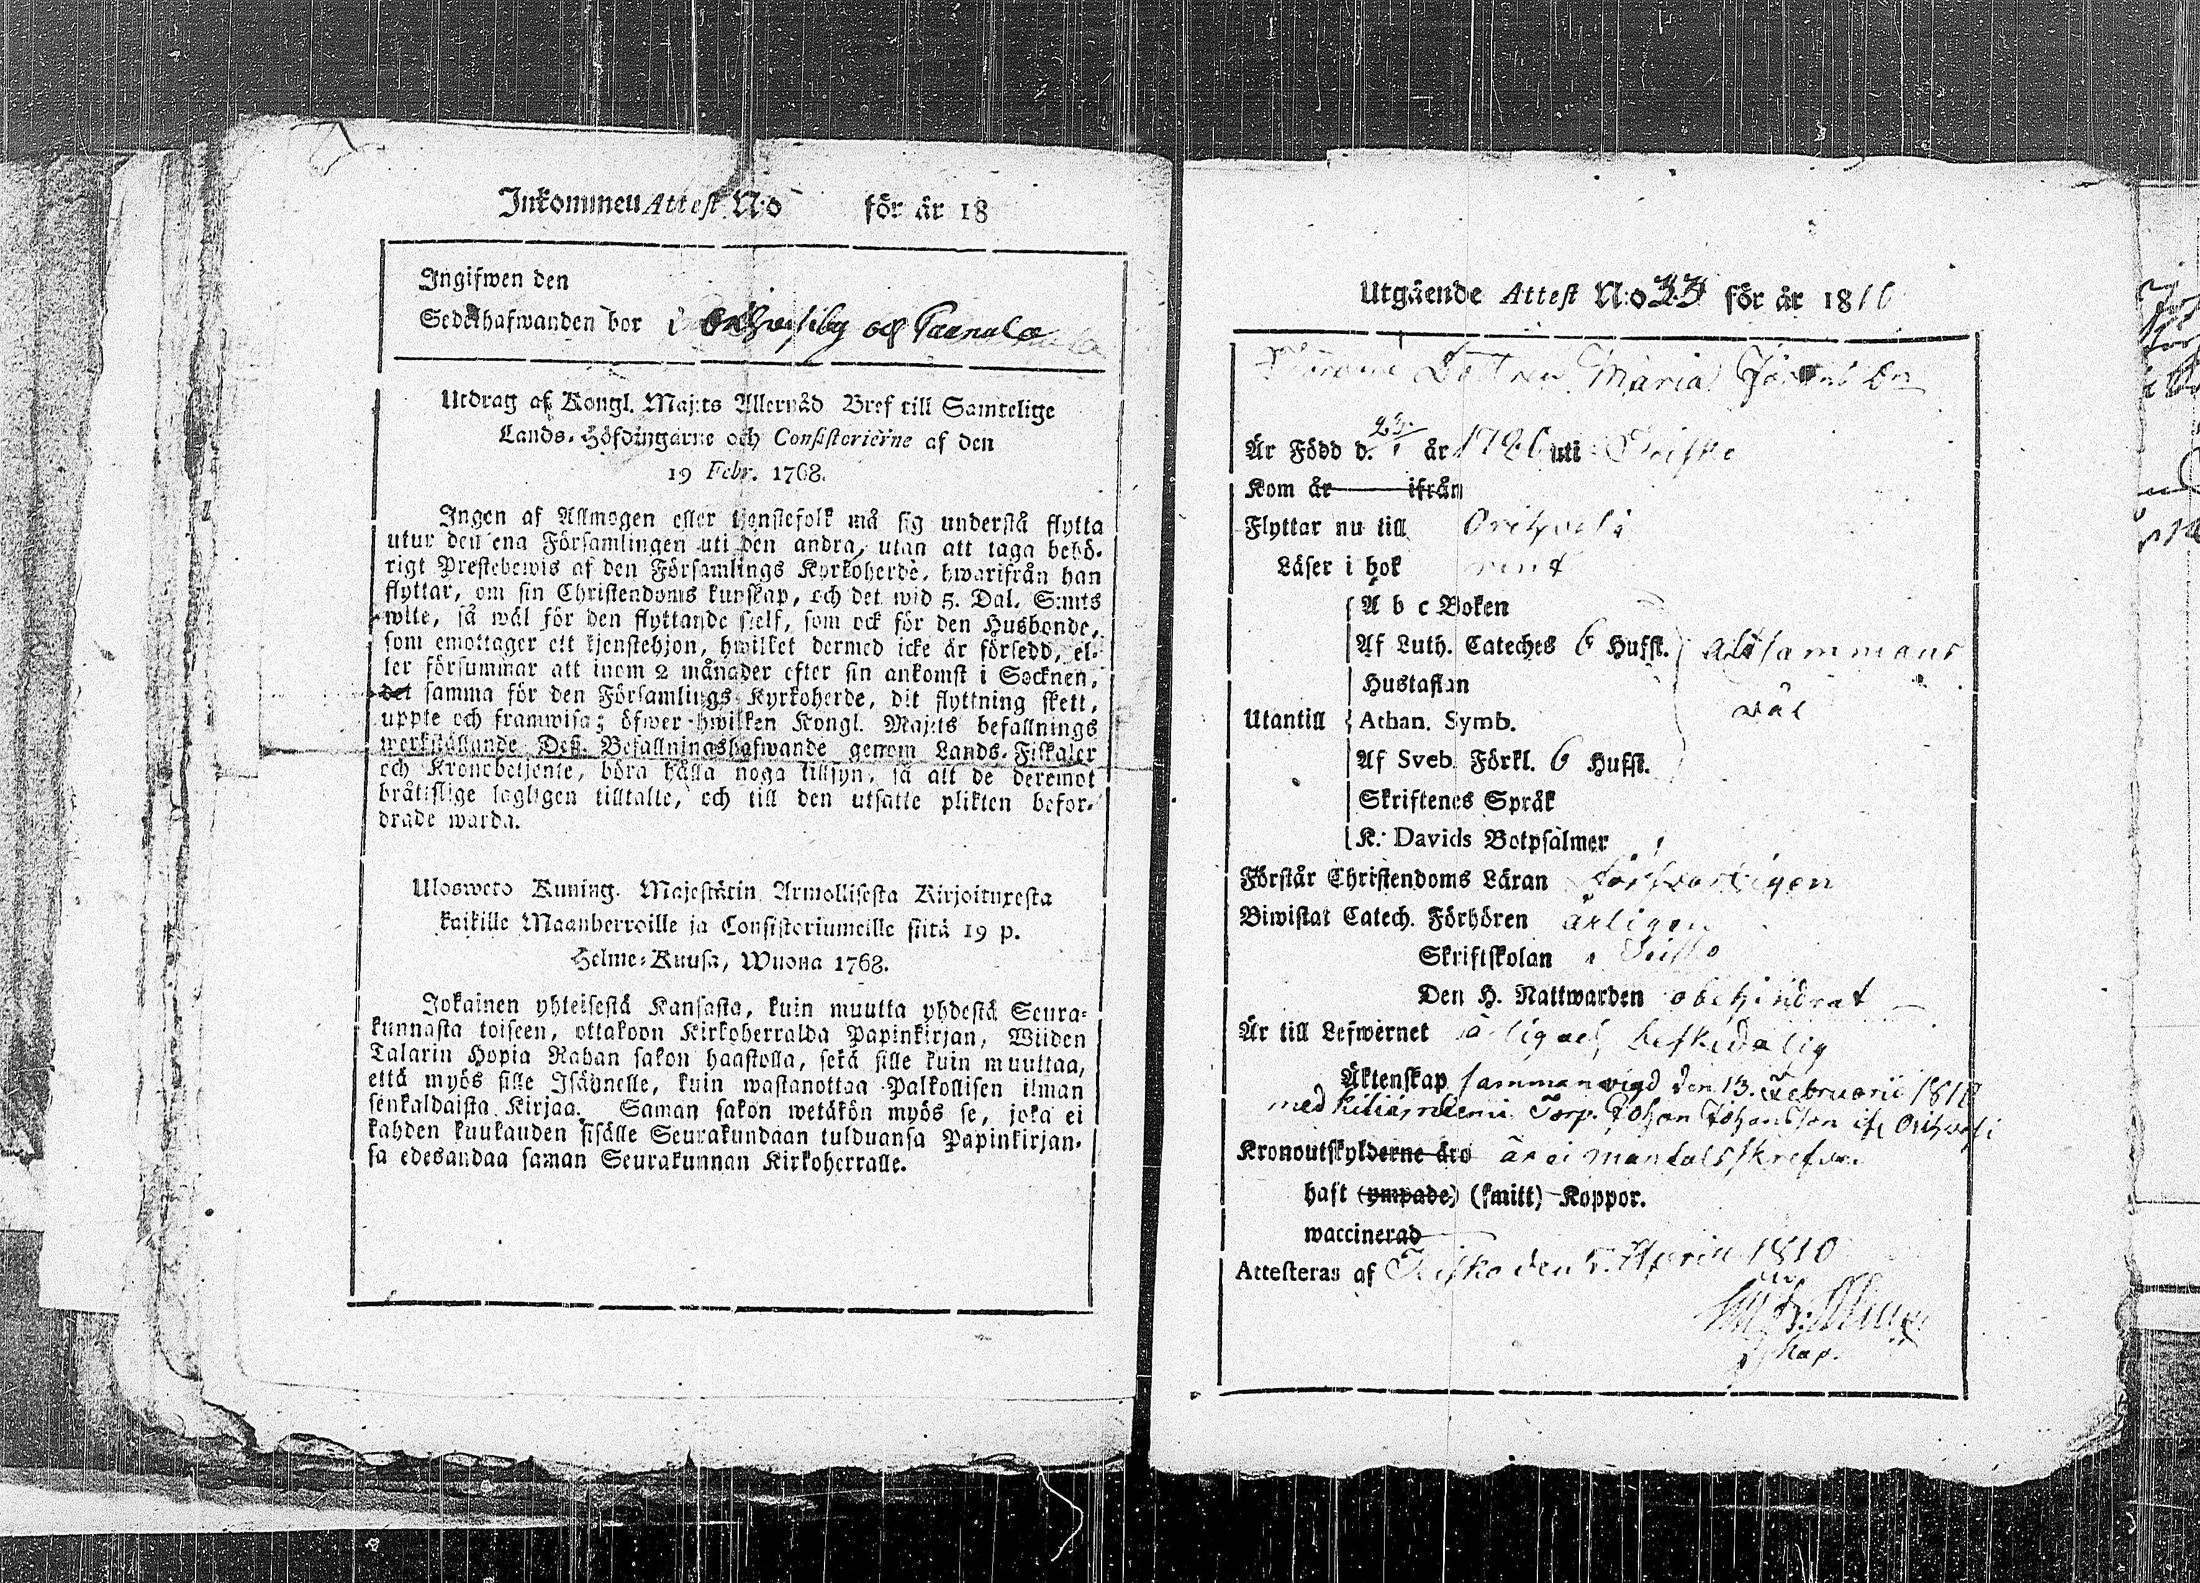 Inkommen Attest N:o för år 18
Ingifwen den
Sedelhafwanden bor i Orihvesiby och
Utdrag af Kongl. Maj:ts Allernåd Bref till Samtelige
Lands-Höfdingarne och Consistorierne af den
19 Febr. 1768.
Ingen af Allmogen eller tjenstefolk må sig understå flytta
utur den ena Församlingen uti den andra, utan att taga behö-
rigt Prestebewis af den Församlings Kyrkoherde, hwarifrån han
flyttar, om sin Christendoms kunskap, och det wid 5. Dal. S:mts
wite, så wäl för den flyttande sielf, som ock för den Husbonde,
som emottager ett tjenstehjon, hwilket dermed icke är försedd, el-
ler försummar att inom 2 månader efter sin ankomst i Socknen,
det samma för den Församlings Kyrkoherde, dit flyttning skett,
uppte och framwisa; öfwer hwilken Kongl. Maj:ts befallnings
werkställande Deß Befallningshafwande genom Lands-Fiskaler
och Kronobetjente, böra hålla noga tillsyn, så att de deremot
brätislige lagligen tilltalte, och till den utsatte plikten befor-
drade warda.
Ulosweto Kuning. Majestätin Armollisesta Kirjoituxesta
kaikille Maanherroille ja Consistoriumeille siitä 19 p.
Helme-Kuusa, Wuona 1768.
Jokainen yhteisestä Kansasta, kuin muutta yhdestä Seura-
kunnasta toiseen, ottakoon Kirkoherralda Papinkirjan, Wiiden
Talarin Hopia Rahan sakon haastolla, sekä sille kuin muuttaa,
että myös sille Isännelle, kuin wastanottaa Palkollisen ilman
senkaldaista Kirjaa. Saman sakon wetäkön myös se, joka ei
kahden kuukauden sisälle Seurakundaan tulduansa Papinkirjan-
sa edesandaa saman Seurakunnan Kirkoherralle.
Utgående Attest N:o 33 för år 1810
Dottren Maria
Är Född d. år uti Teisko
Kom år ifrån
Flyttar nu till Orihvesi
Läser i bok rent
A b c Boken
Af Luth. Cateches 6 Hufst. altsammans
Hustaflan
wäl
Utantill Athan. Symb.
Af Sveb. Förkl. 6 Hufst.
Skriftenes Språk
K. Davids Botpsalmer
Förstår Christendoms Läran försvarligen
Biwistat Catech. Förhören årligen
Skriftskolan i Teisko
Den H. Nattwarden obehindrat
Är till Lefwernet ärlig och beskedelig
Äktenskap sammanvigd den 13. Februarii 1810
med Torp. Johan Johansson ifr. Orihvesi
Kronoutskylderne äro är ei mantalsskrefven
haft (ympade) (smitt) Koppor.
waccinerad
Attesteras af Teisko den 5. April 1810
Kap.